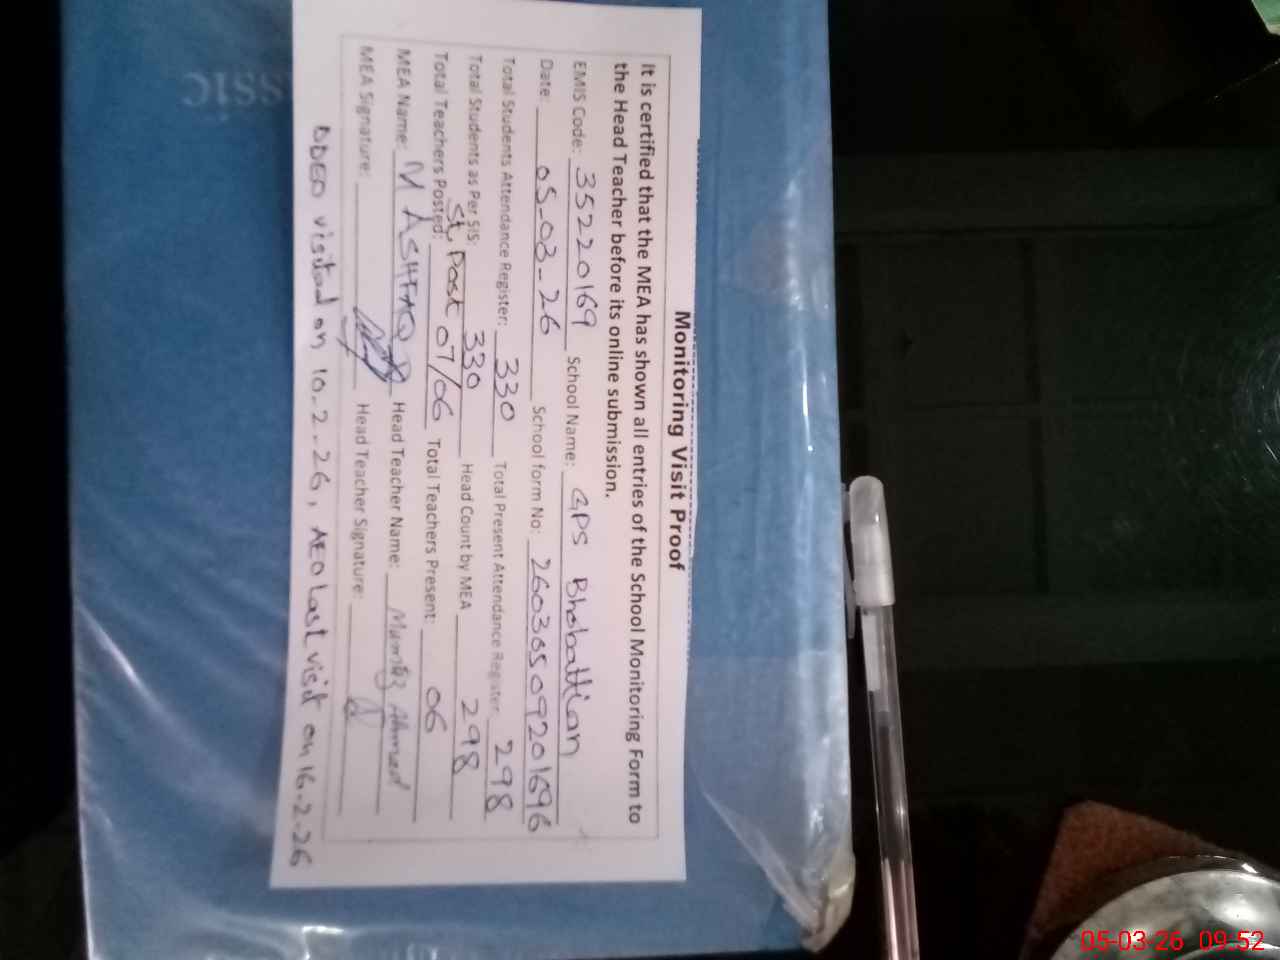 Monitoring Visit Proof
It is certified that the MEA has shown all entries of the School Monitoring Form to
the Head Teacher before its online submission.
EMIS Code: 35220169 School Name: GPS Bhobattian
Date: 05-03-26 School form No: 26030509201696
Total Students Attendance Register: 330 Total Present Attendance Register: 298
Total Students as Per SIS: 330 Head Count by MEA 298
Total Teachers Posted: St, Post 07/06 Total Teachers Present: 06
MEA Name: M ASHFAQ Head Teacher Name: Mumtaz Ahmed
MEA Signature: Head Teacher Signature:
DDEO visited on 10-2-26, AEO Last visit on 16-2-26
05-03-26 09:52